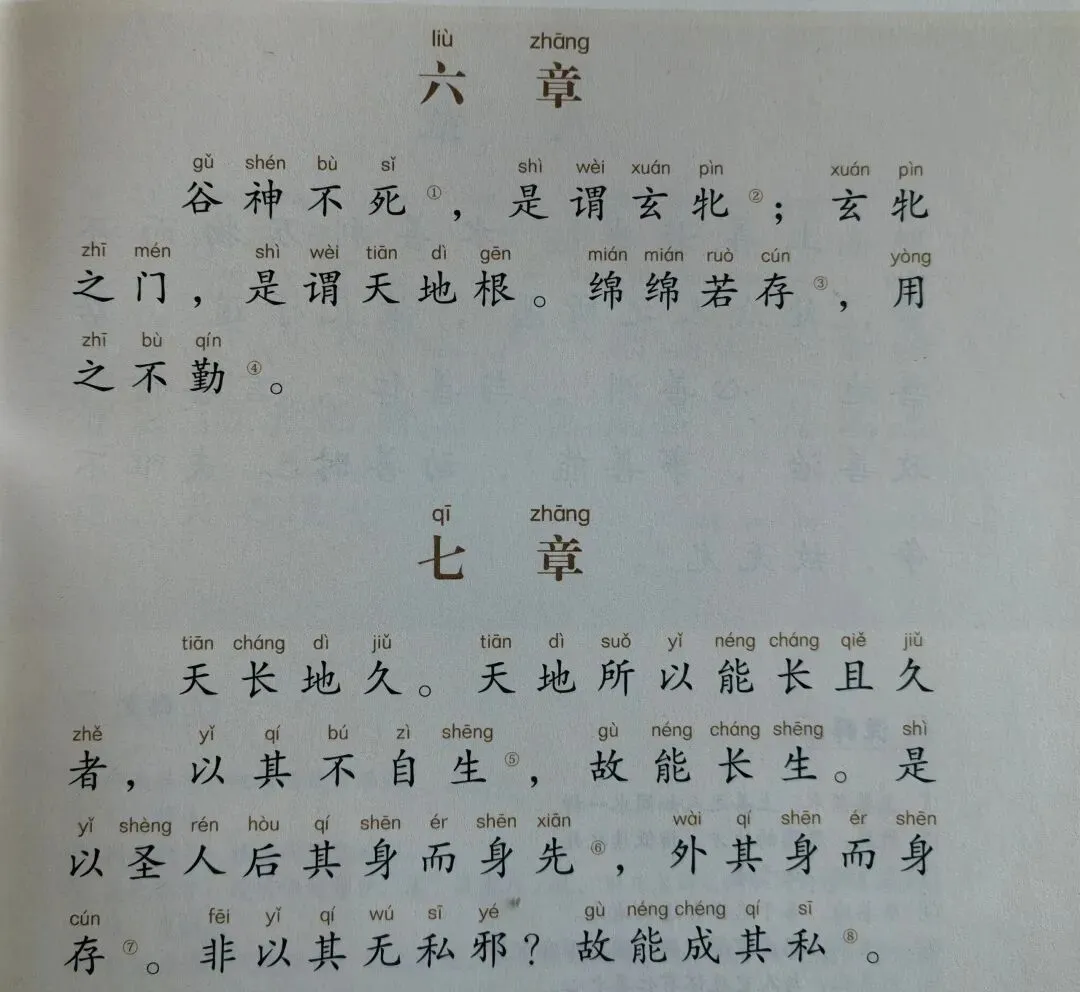 liù zhāng
六 章
gǔ shén bù sǐ shì wèi xuán pìn xuán pìn
谷神不死①，是谓玄牝②；玄牝
zhī mén shì wèi tiān dì gēn mián mián ruò cún yòng
之门，是谓天地根。绵绵若存③，用
zhī bù qín
之不勤④。
qī zhāng
七 章
tiān cháng dì jiǔ tiān dì suǒ yǐ néng cháng qiě jiǔ
天长地久。天地所以能长且久
zhě yǐ qí bú zì shēng gù néng cháng shēng shì
者，以其不自生⑤，故能长生。是
yǐ shèng rén hòu qí shēn ér shēn xiān wài qí shēn ér shēn
以圣人后其身而身先⑥，外其身而身
cún fēi yǐ qí wú sī yé gù néng chéng qí sī
存⑦。非以其无私邪？故能成其私⑧。